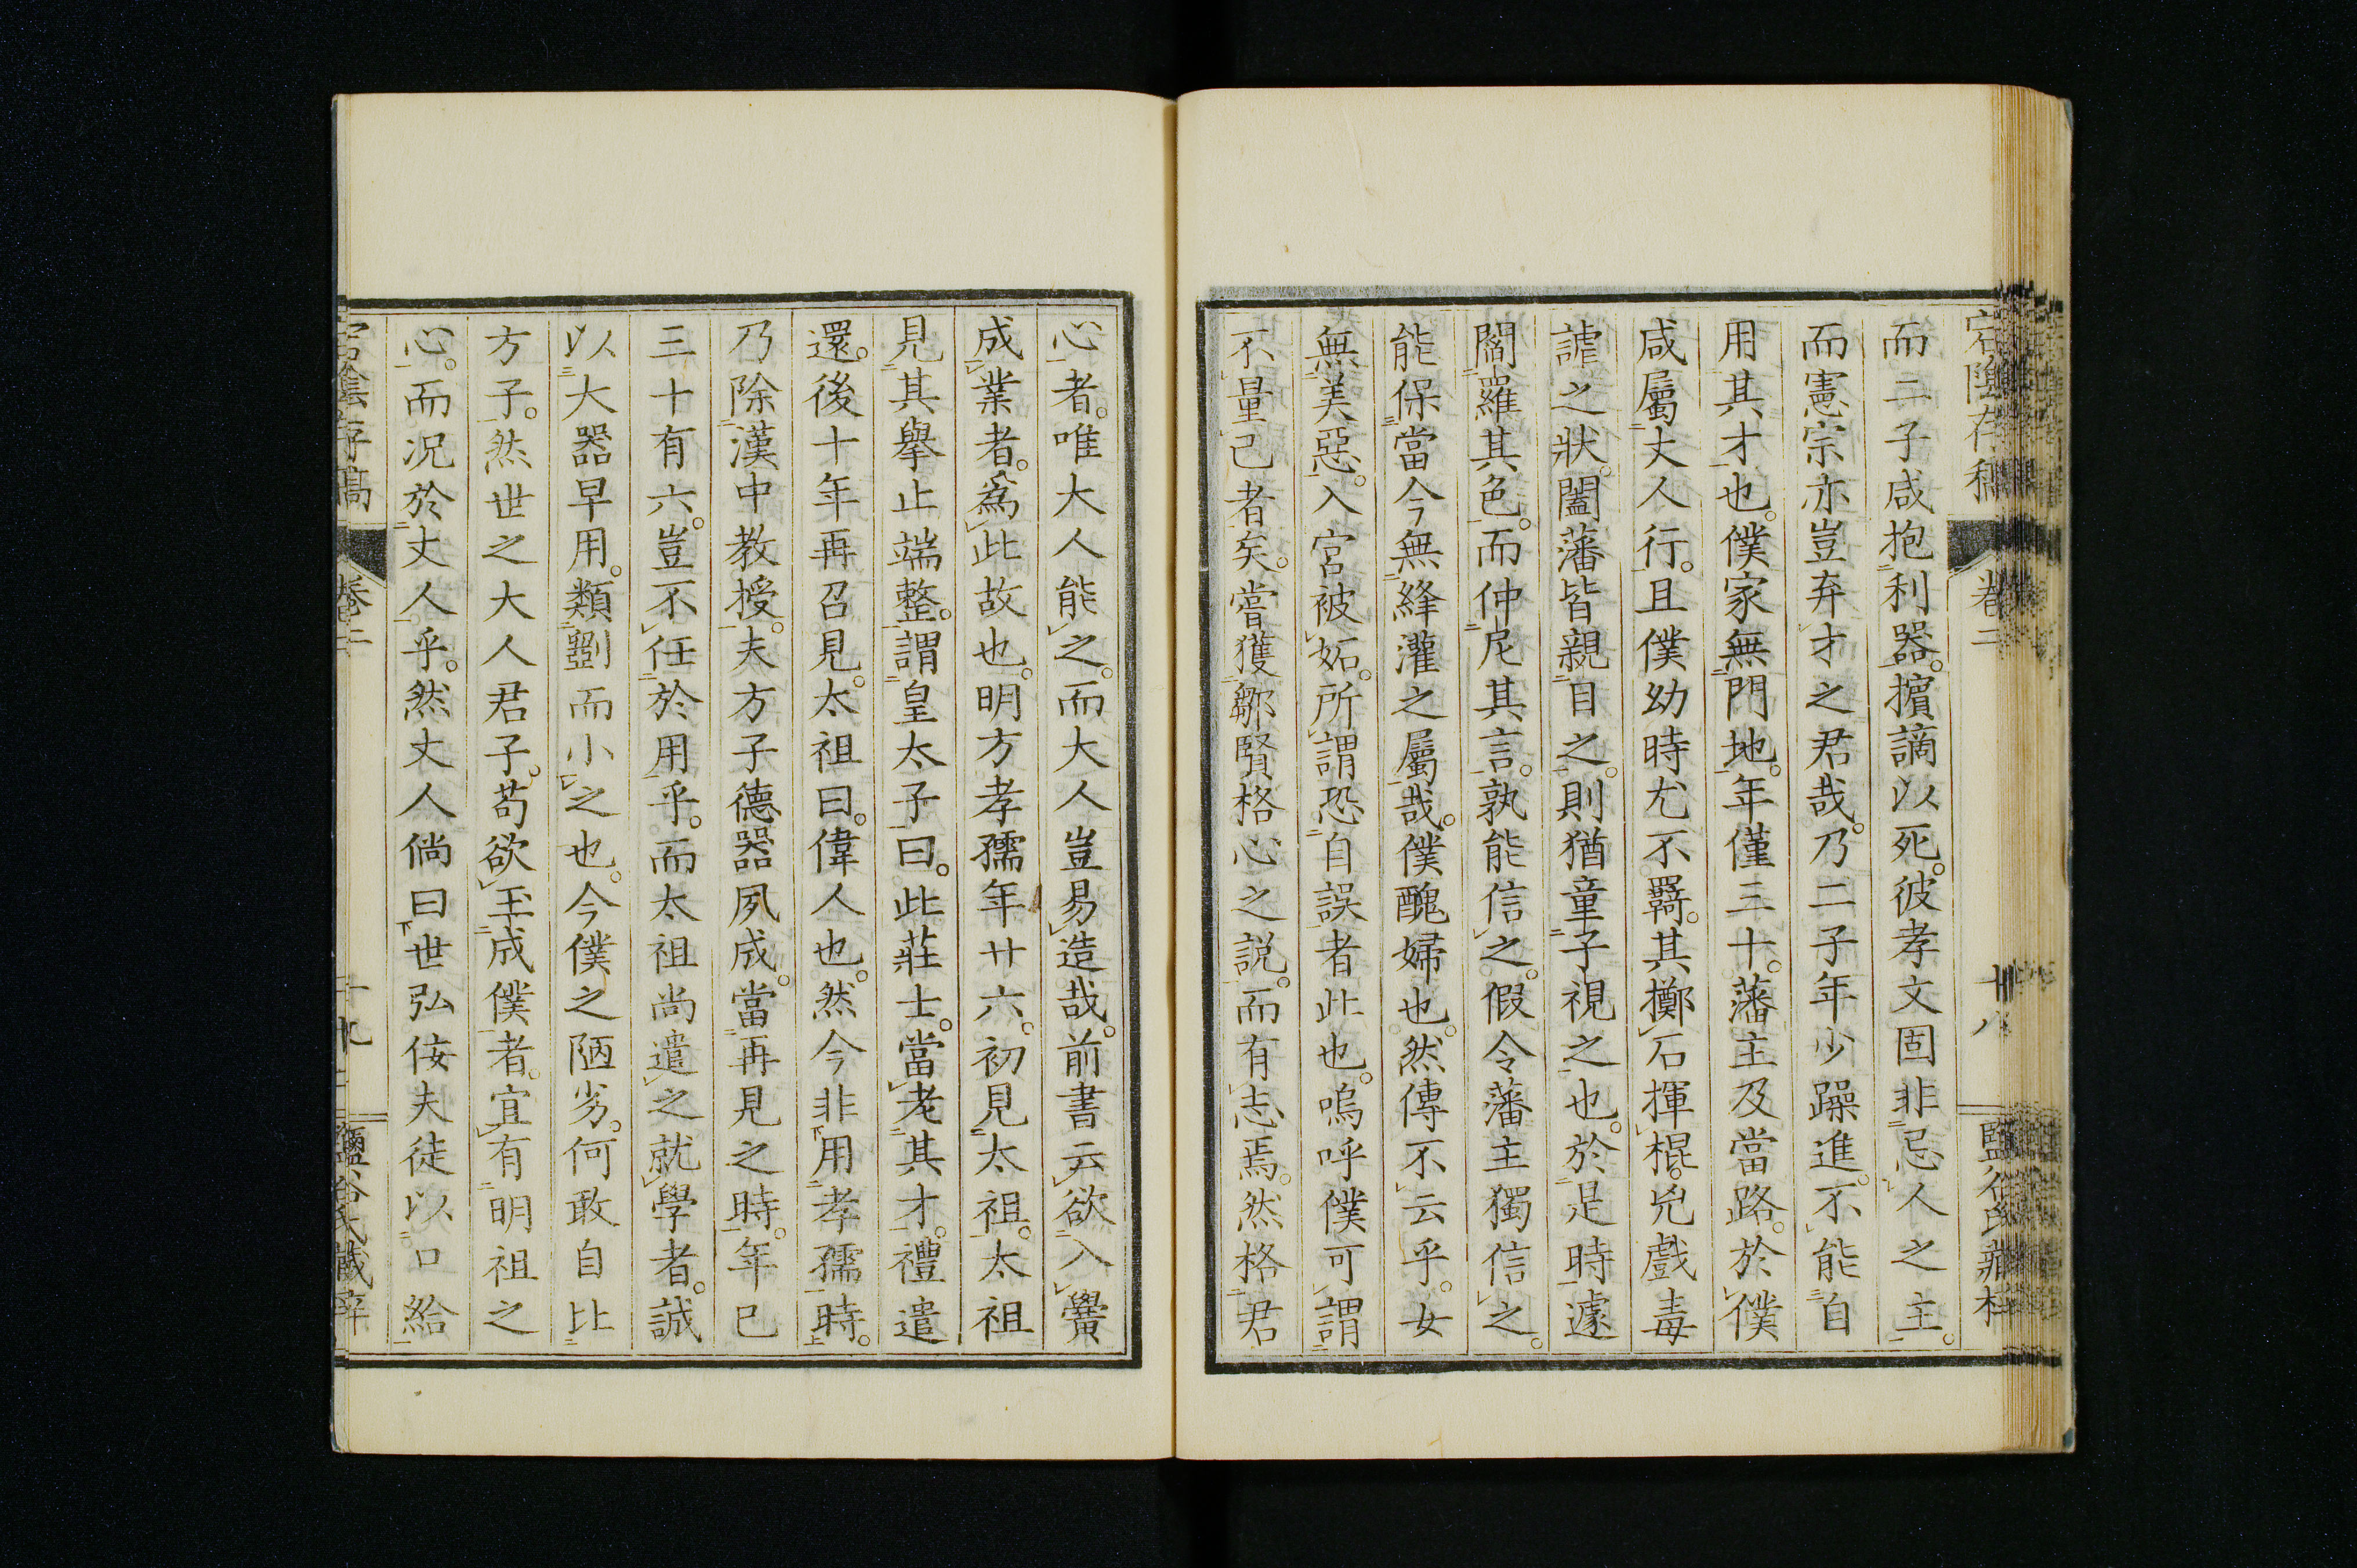 宕陰存稿 卷二 十八 鹽谷氏藏梓
而二子咸抱利器。擯謫以死。彼孝文固非忌人之主。
而憲宗亦豈弃才之君哉。乃二子年少躁進。不能自
用其才也。僕家無門地。年僅三十。藩主及當路。於僕
咸屬丈人行。且僕幼時尤不羈。其擲石揮棍。兇戲毒
謔之狀。闔藩皆親目之。則猶童子視之也。於足時遽
閻羅其色。而仲尼其言。孰能信之。假令藩主獨信之。
能保當今無絳灌之屬哉。僕醜婦也。然傳不云乎。女
無美惡。入宮被妬。所謂恐自誤者此也。嗚呼僕可謂
不量己者矣。嘗獲鄒賢格心之説。而有志焉。然格君
心者。唯大人能之。而大人豈易造哉。前書云欲入黌
成業者。爲此故也。明方孝孺年廿六。初見太祖。太祖
見其擧止端整。謂皇太子曰。此莊士。當老其才。禮遣
還。後十年再召見。太祖曰。偉人也。然今非用孝孺時。
乃除漢中教授。夫方子德器夙成。當再見之時。年已
三十有六。豈不任於用乎。而太祖尚遣之就學者。誠
以大器早用。類劉而小之也。今僕之陋劣。何敢自比
方子。然世之大人君子。苟欲玉成僕者。宜有明祖之
心。而况於丈人乎。然丈人倘曰世弘侫夫徒以口給
宕陰存稿 卷二 十九 鹽谷氏藏梓